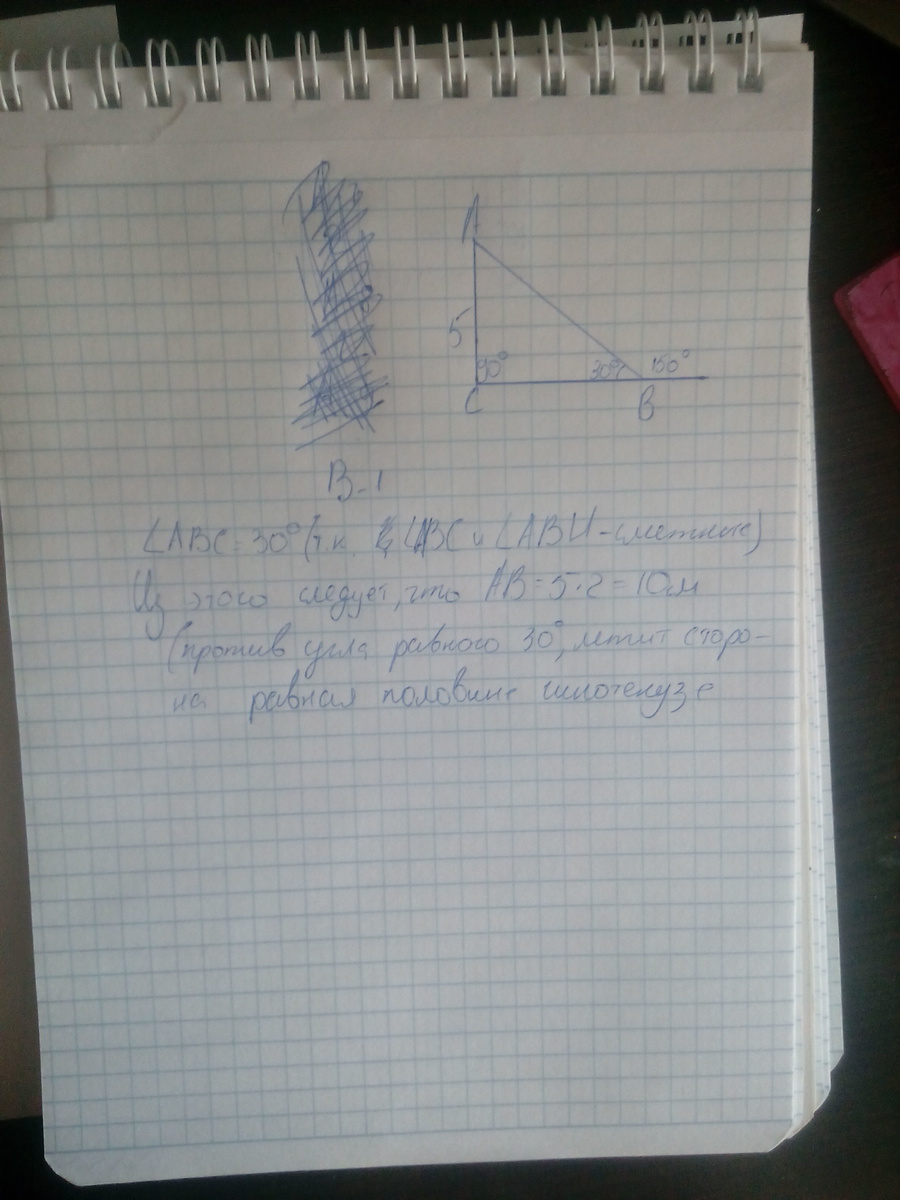 A
5
90°
30°
150°
C
B
В-1
∠ABC = 30° (т.к. ∠ABC и ∠ABH - смежные)
Из этого следует, что AB = 5·2 = 10м
(против угла равного 30°, лежит сторо-
на равная половине гипотенузе